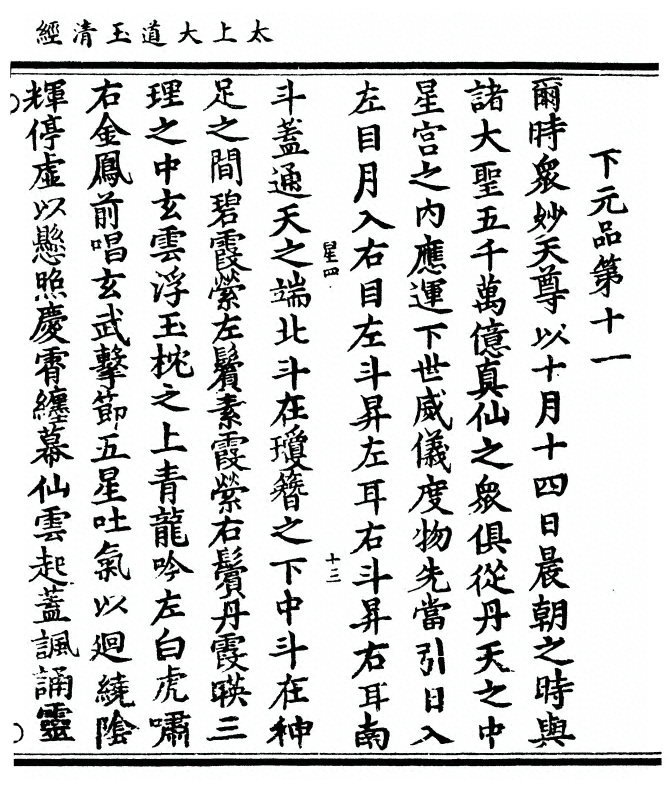 太上大道玉清經
下元品第十一
爾時衆妙天尊以十月十四日晨朝之時與
諸大聖五千萬億真仙之衆俱從丹天之中
星宮之内應運下世威儀度物先當引日入
左目月入右目左斗昇左耳右斗昇右耳南
星四
十三
斗蓋通天之端北斗在瓊簪之下中斗在神
足之間碧霞縈左鬢素霞縈右鬢丹霞暎三
理之中玄雲浮玉枕之上青龍吟左白虎嘯
右金鳳前唱玄武擊節五星吐氣以廻繞陰
輝停虛以懸照慶霄纏幕仙雲起蓋諷誦靈